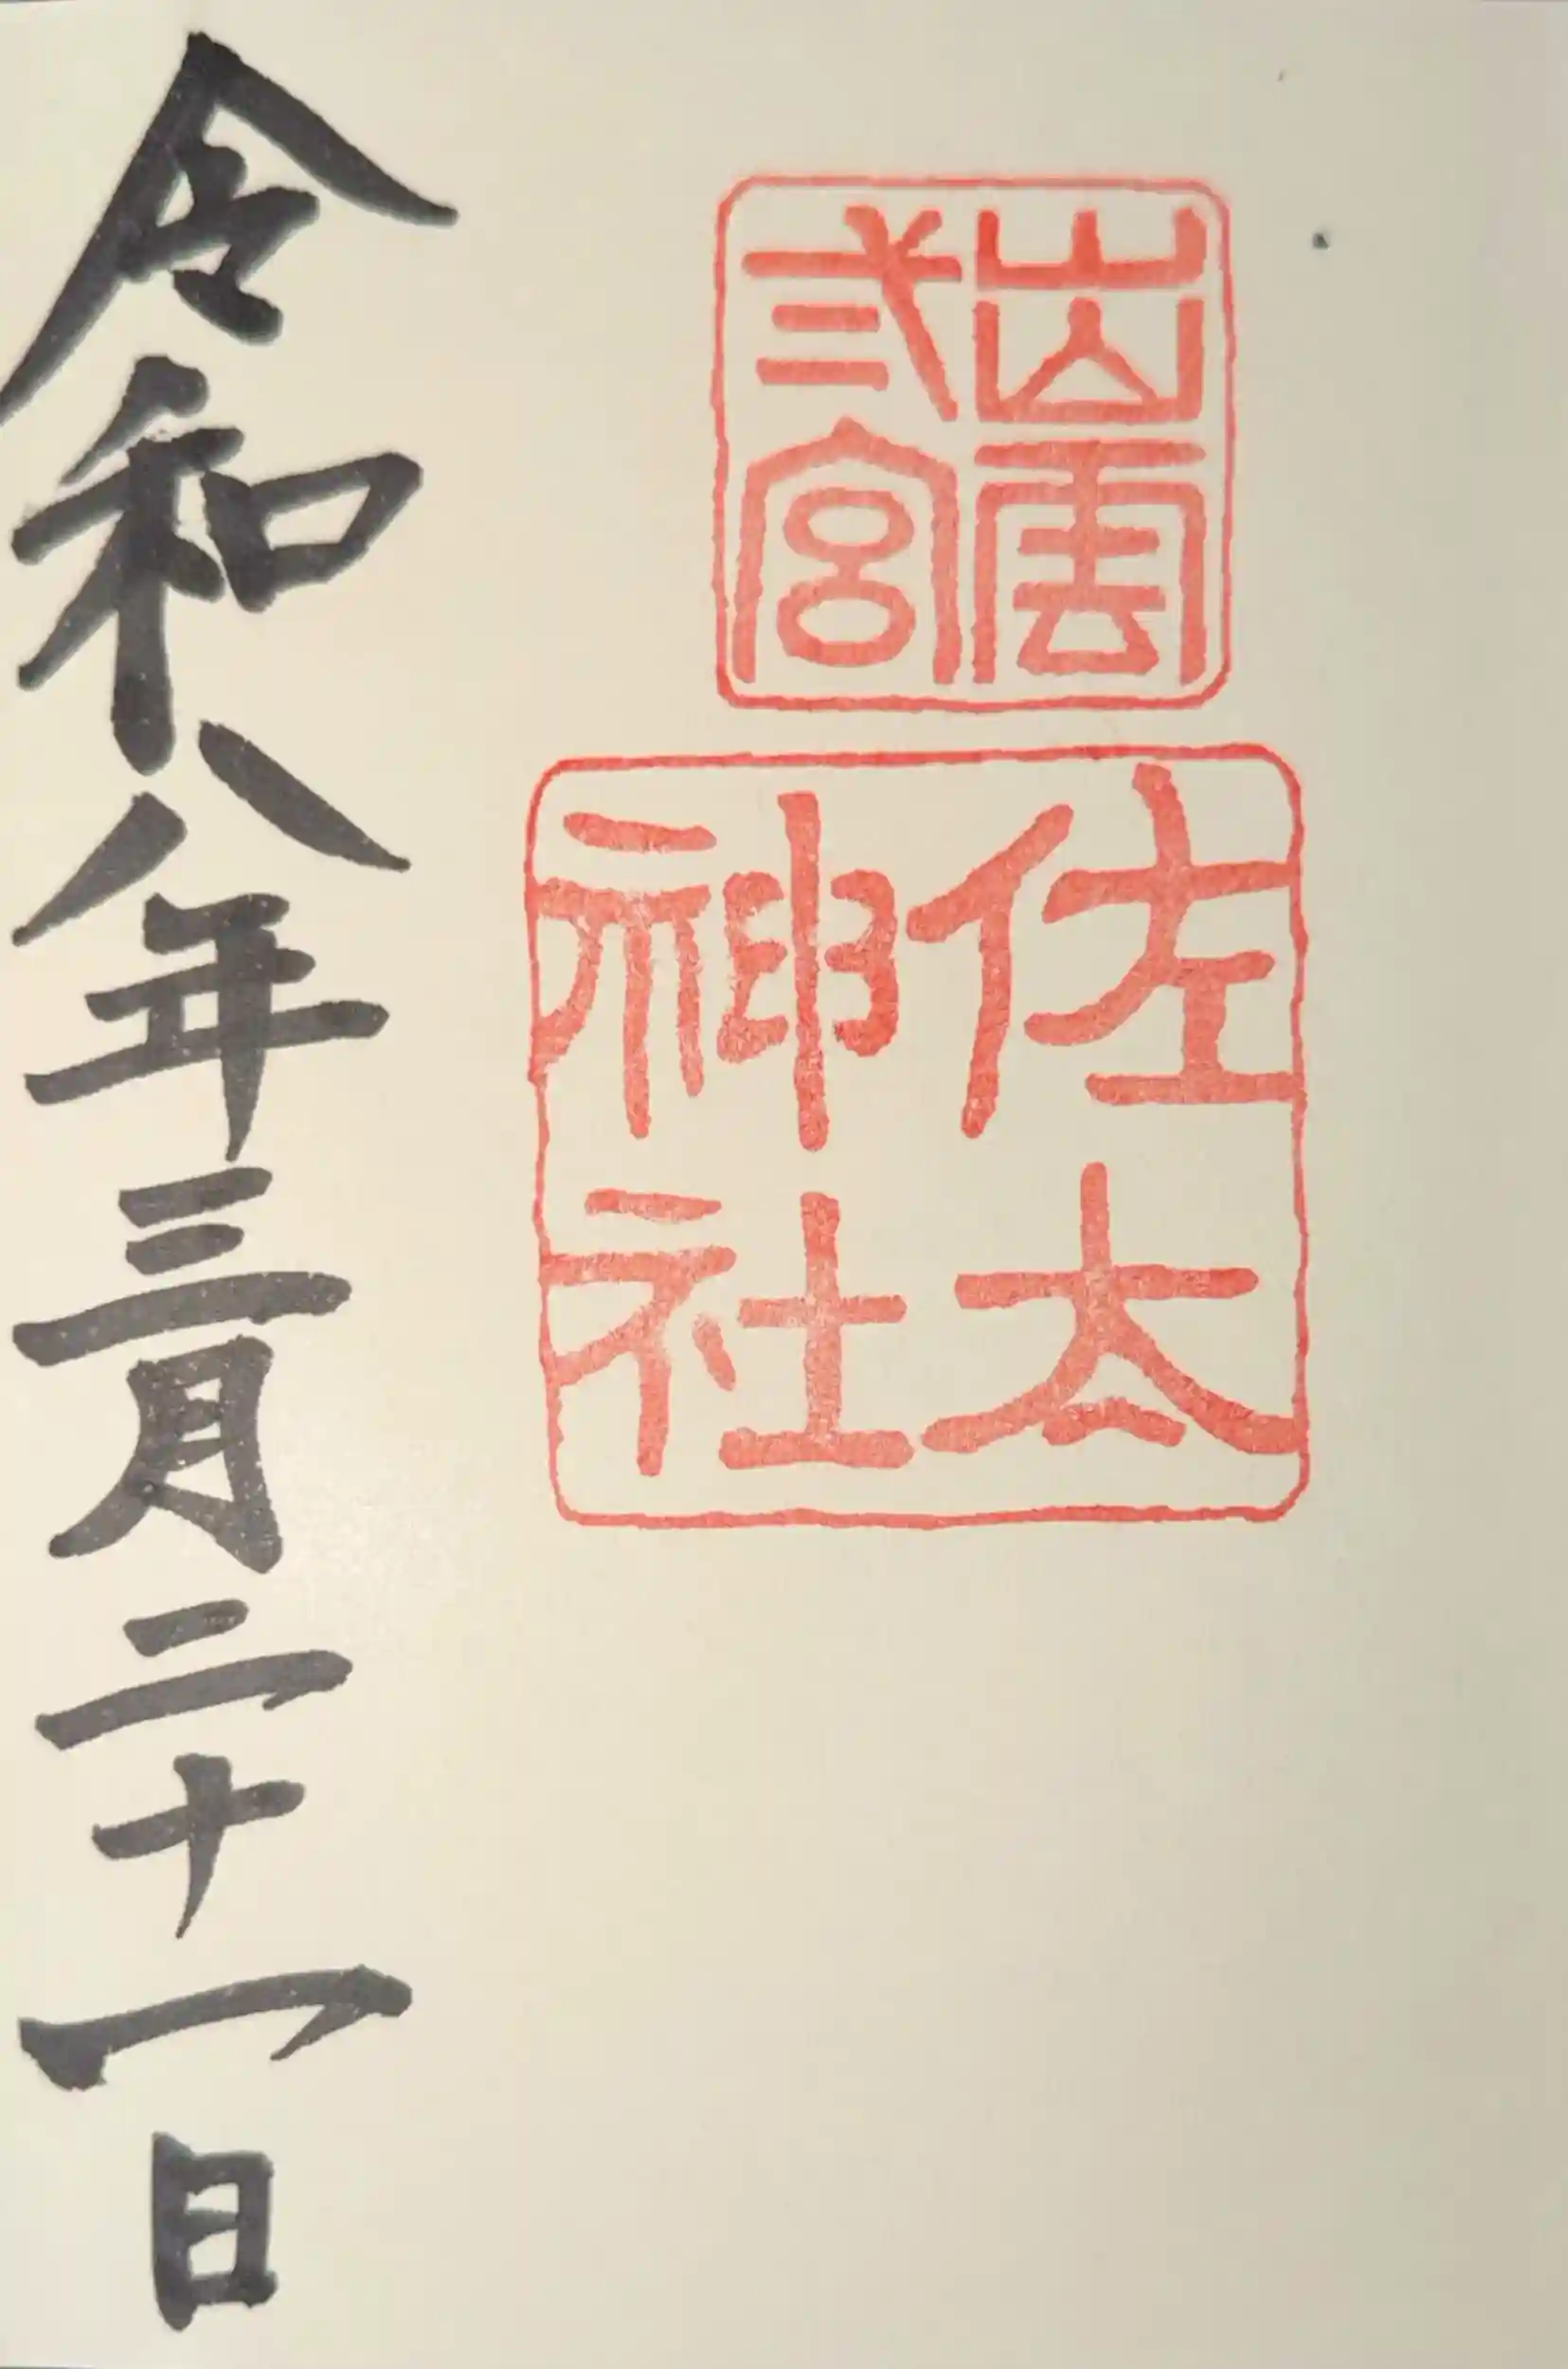 出雲
弍宮
佐太
神社
令和八年三月二十一日